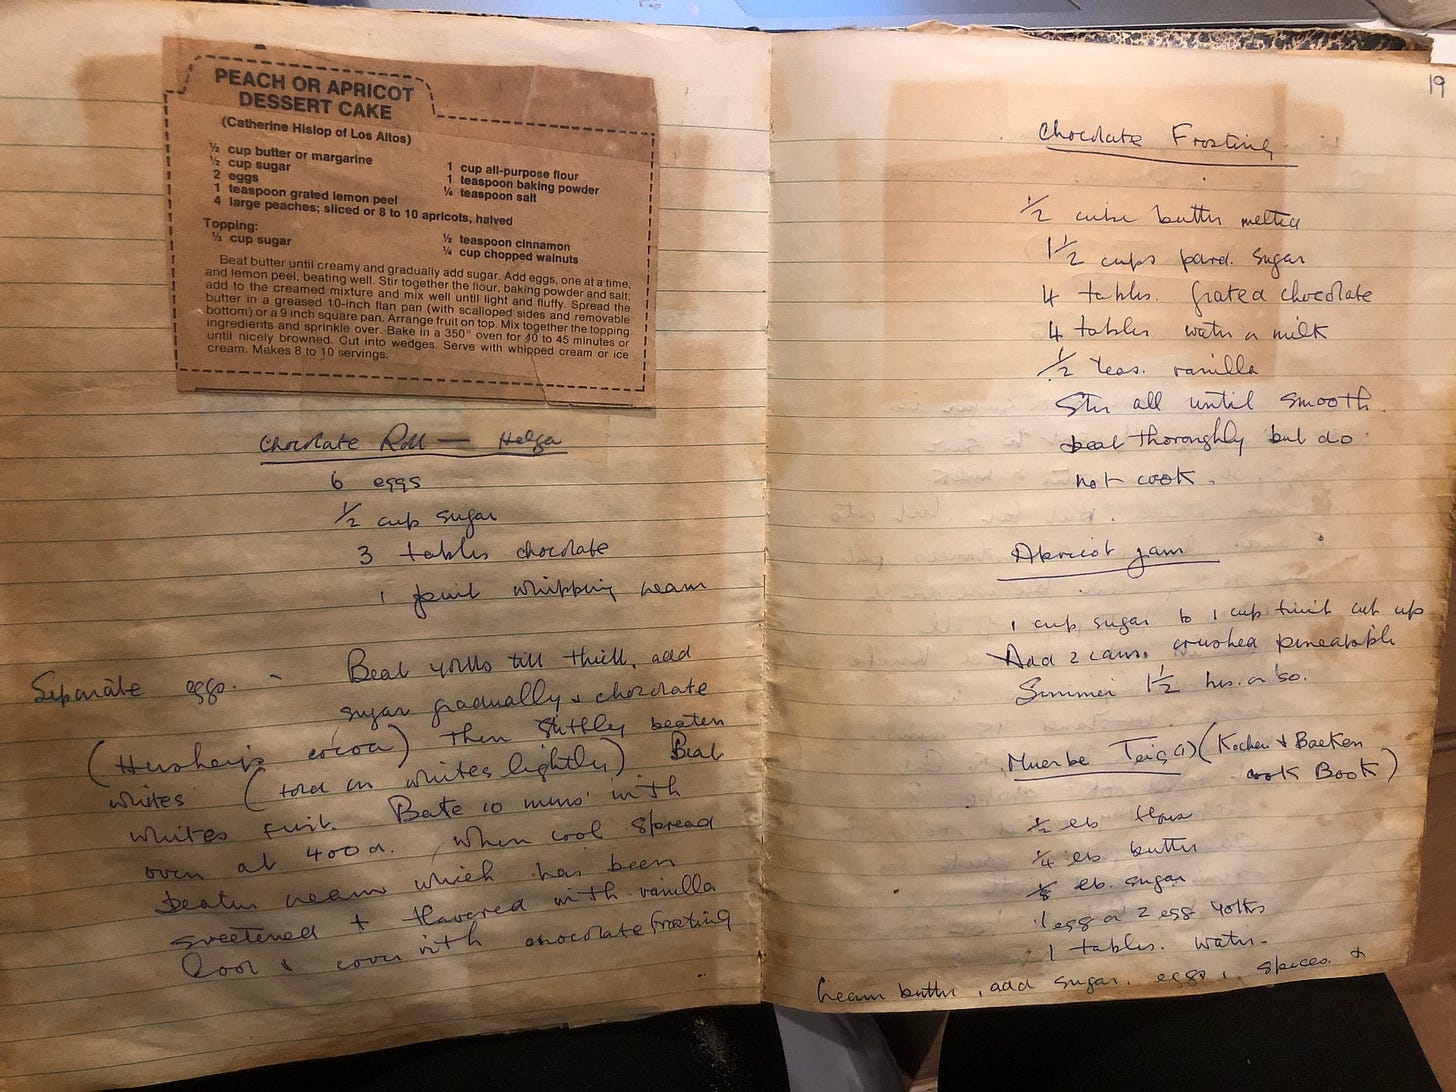 PEACH OR APRICOT
DESSERT CAKE
(Catherine Hislop of Los Altos)
½ cup butter or margarine
½ cup sugar
2 eggs
1 teaspoon grated lemon peel
4 large peaches; sliced or 8 to 10 apricots, halved
1 cup all-purpose flour
1 teaspoon baking powder
¼ teaspoon salt
Topping:
⅓ cup sugar
½ teaspoon cinnamon
¼ cup chopped walnuts
Beat butter until creamy and gradually add sugar. Add eggs, one at a time,
and lemon peel, beating well. Stir together the flour, baking powder and salt;
add to the creamed mixture and mix well until light and fluffy. Spread the
butter in a greased 10-inch flan pan (with scalloped sides and removable
bottom) or a 9 inch square pan. Arrange fruit on top. Mix together the topping
ingredients and sprinkle over. Bake in a 350° oven for 40 to 45 minutes or
until nicely browned. Cut into wedges. Serve with whipped cream or ice
cream. Makes 8 to 10 servings.
Chocolate Roll — Helga
6 eggs
1/2 cup sugar
3 tables chocolate
1 pint whipping cream
Separate eggs. - Beat yolks till thick, add
sugar gradually & chocolate
(Hershey's cocoa) then stiffly beaten
whites (fold in whites lightly) Beat
whites first. Bake 10 mins in
oven at 400°. When cool spread
beaten cream which has been
sweetened + flavored with vanilla
Roll & cover with chocolate frosting
19
Chocolate Frosting
1/2 cube butter melted
1 1/2 cups powd. sugar
4 tables. grated chocolate
4 tables water or milk
1/2 teas. vanilla
Stir all until smooth.
beat thoroughly but do
not cook.
Apricot Jam
1 cup sugar to 1 cup fruit cut up
Add 2 cans crushed pineapple
Simmer 1 1/2 hrs. or so.
Muerbe Teig (1) (Kochen & Backen
cook Book)
1/2 lb flour
1/4 lb butter
1/8 lb. sugar
1 egg or 2 egg yolks
1 tables. water
Cream butter, add sugar, eggs, spices &